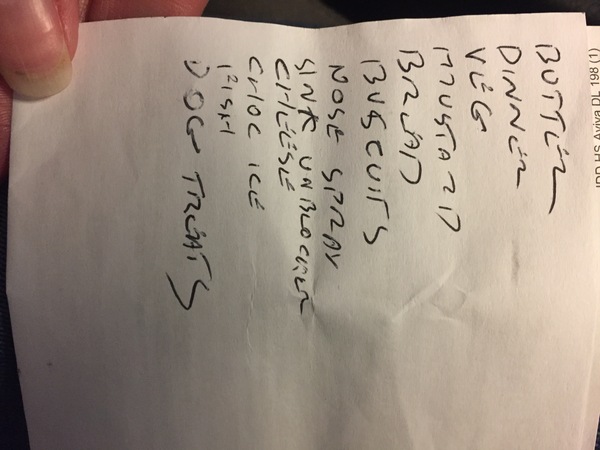 BUTTER
DINNER
VEG
MUSTARD
BREAD
BUSCUITS
NOSE SPRAY
SINK UNBLOCKER
CHEESE
CHOC ICE
FISH
DOG TREATS
IDD HS Aviva DL 198 (1)